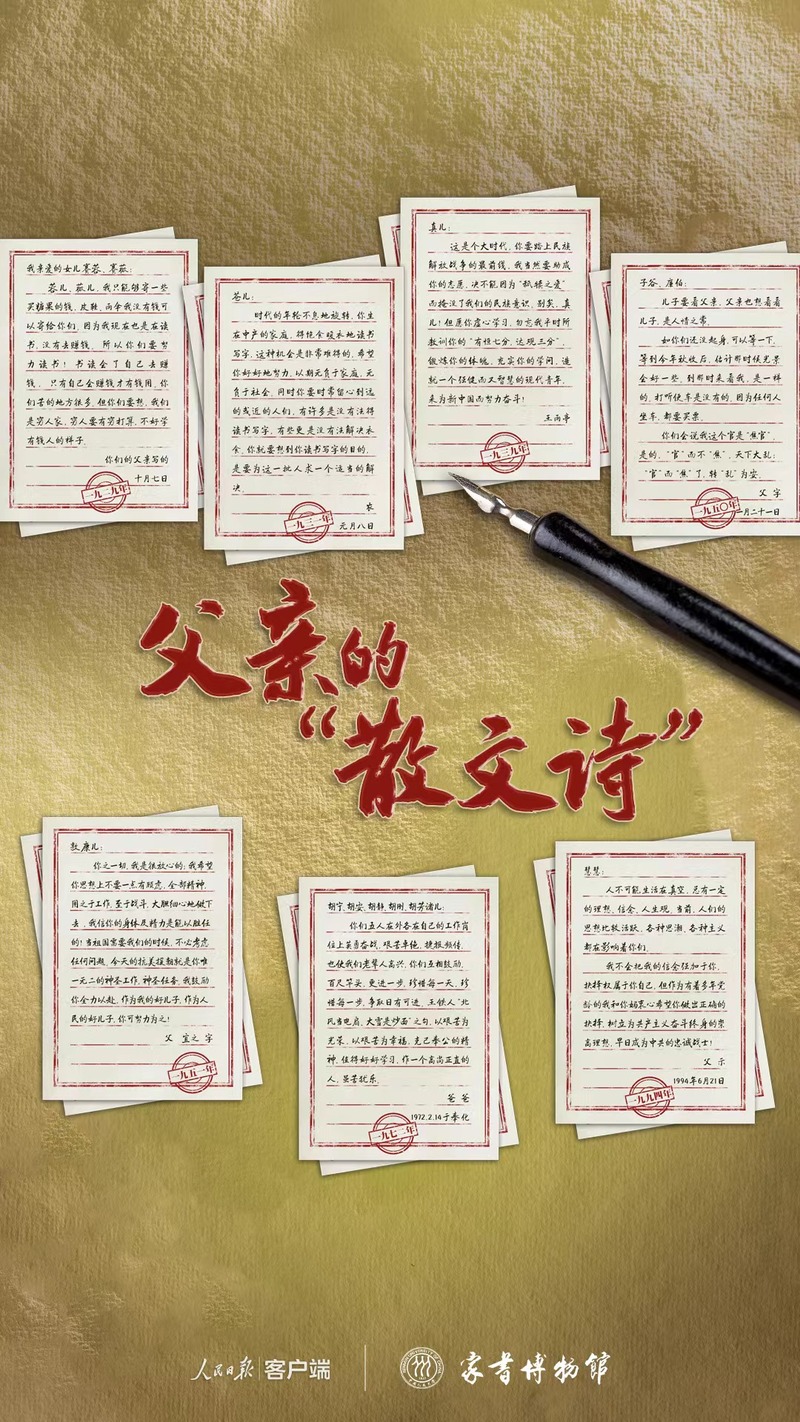 我亲爱的女儿赛蓉、赛荻:
蓉儿、荻儿,我只能够寄一些
买糖果的钱,皮鞋,而今我没有钱可
以寄给你们,因为我现在也是在读
书,没有去赚钱。所以你们要努
力读书!书读会了自己去赚
钱。只有自己会赚钱才有钱用,你
们苦的地方很多,但你们要想,我们
是穷人家,穷人要有穷打算,不好学
有钱人的样子。
你们的父亲写的
十月七日
一九二九年
苍儿:
时代的年轮不息地旋转,你生
在中产的家庭,得饱食暖衣地读书
写字,这种机会是非常难得的,希望
你好好地努力,以期无负于家庭,无
负于社会,同时你要时常留心到远
的或近的人们,有许多是没有法得
读书写字,有些更是没有法解决衣
食,你就要想到你读书写字的目的,
是要为这一批人求一个适当的解
决。
农
元月八日
一九三一年
真儿:
这是个大时代,你要踏上民族
解放战争的最前线,我当然要助成
你的志愿,决不能因为“舐犊之爱”
而掩没了我们的民族意识。别矣,真
儿!但愿你虚心学习,勿忘我平时所
教训你的“有恒七分,达观三分”,
锻炼你的体魄,充实你的学问,造
就一个强健而又智慧的现代青年,
来为新中国而努力奋斗!
王雨亭
一九三九年
子谷、廉伯:
儿子要看父亲,父亲也想看看
儿子,是人情之常。
如你们还没起身,可以等一下,
等到今年秋收后,估计那时候光景
会好一些,到那时来看我,是一样
的。打听便车是没有的,因为任何人
坐车,都要买票。
你们会说我这个官是“焦官”,
是的,“官”而不“焦”,天下大乱;
“官”而“焦”了,转“乱”为安。
父 字
月二十一日
一九五〇年
父亲的
“散文诗”
敖康儿:
你之一切,我是很放心的;我希望
你思想上不要一点有顾虑,全部精神,
用之于工作,至于战斗,大胆细心地做下
去,我信你的身体及精力是能以胜任
的!当祖国需要我们的时候,不必考虑
任何问题,今天的抗美援朝就是你唯
一无二的神圣工作,神圣任务,我鼓励
你全力以赴,作为我的好儿子,作为人
民的好儿子,你可努力为之!
父 宜之 字
一九五一年
胡宁、胡安、胡静、胡刚、胡芳诸儿:
你们五人在外各在自己的工作岗
位上英勇奋战,艰苦卓绝,捷报频传,
也使我们老辈人高兴,你们互相鼓励,
百尺竿头,更进一步,珍惜每一天,珍
惜每一步,争取日有可进。王铁人“北
风当电扇,大雪是炒面”之句,以艰苦为
光荣,以艰苦为幸福,克己奉公的精
神,值得好好学习,作一个高尚正直的
人,英苦犹乐。
爸爸
1972.2.14于奉化
一九七二年
慧慧:
人不可能生活在真空,总有一定
的理想、信念、人生观。当前,人们的
思想比较活跃,各种思潮、各种主义
都在影响着你们。
我不会把我的信念强加于你,
抉择权属于你自己,但作为有着多年党
龄的我和你妈衷心希望你做出正确的
抉择,树立为共产主义奋斗终身的崇
高理想,早日成为中共的忠诚战士!
父 示
1994年6月21日
一九九四年
人民日报 客户端 家书博物馆